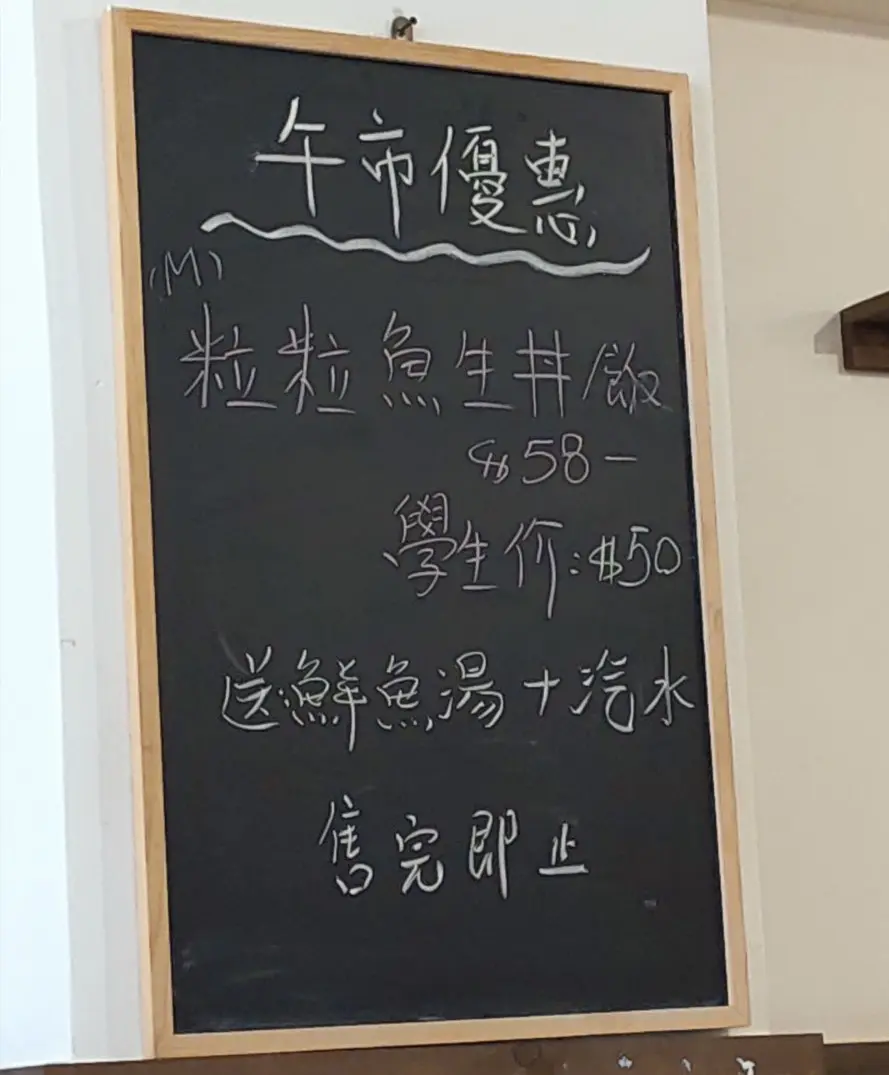 午市優惠
(M)
粒粒魚生丼飯
$58-
學生价:$50
送鮮魚湯+汽水
售完即止